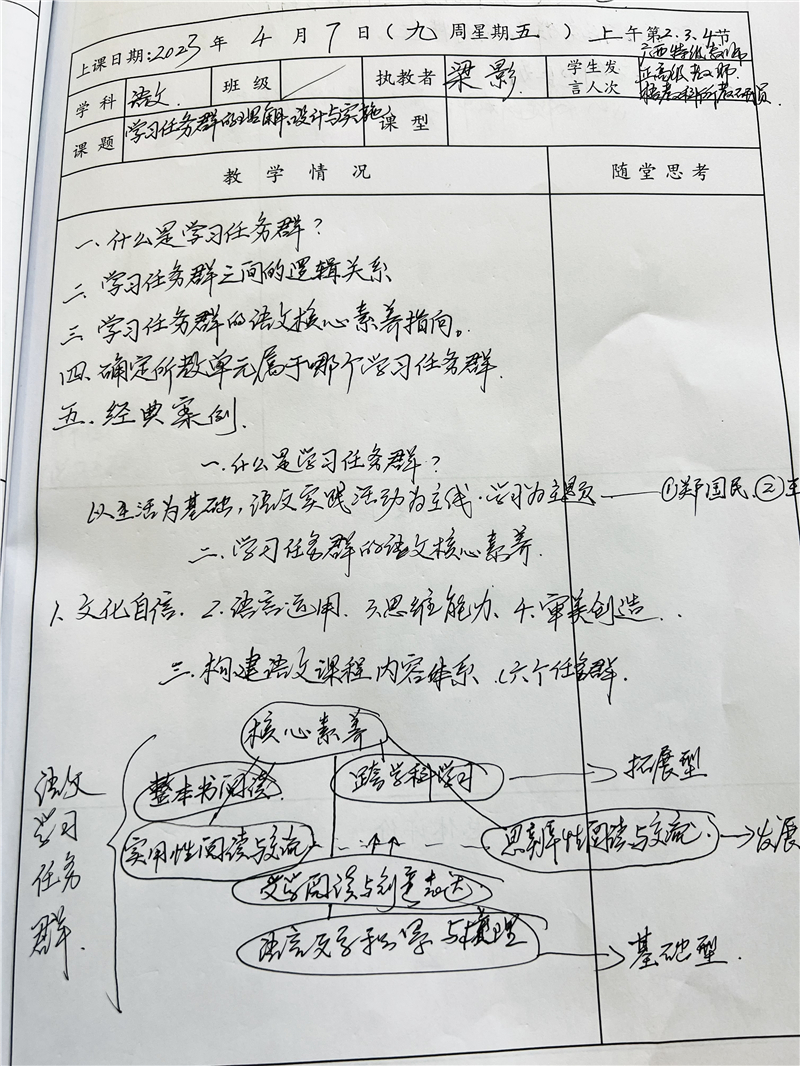 上课日期:2023年4月7日(九周星期五)上午第2.3.4节
广西特级教师
正高级教师
学科 语文 班级 / 执教者 梁影 学生发言人次
课题 学习任务群的理解、设计与实施 课型
教学情况 随堂思考
一.什么是学习任务群?
二 学习任务群之间的逻辑关系
三 学习任务群的语文核心素养指向。
四.确定所教单元属于哪个学习任务群.
五.经典案例.
一.什么是学习任务群?
以生活为基础,语文实践活动为主线.学习为主题 ①郑国民.②王
二.学习任务群的语文核心素养.
1.文化自信.2.语言运用.3.思维能力、4.审美创造..
三.构建语文课程内容体系.(六个任务群.
核心素养
整本书阅读. 跨学科学习 拓展型
语文学习任务群.
实用性阅读与交流 思辨性阅读与交流. 发展
文学阅读与创意表达.
语言文字积累与梳理 基础型.